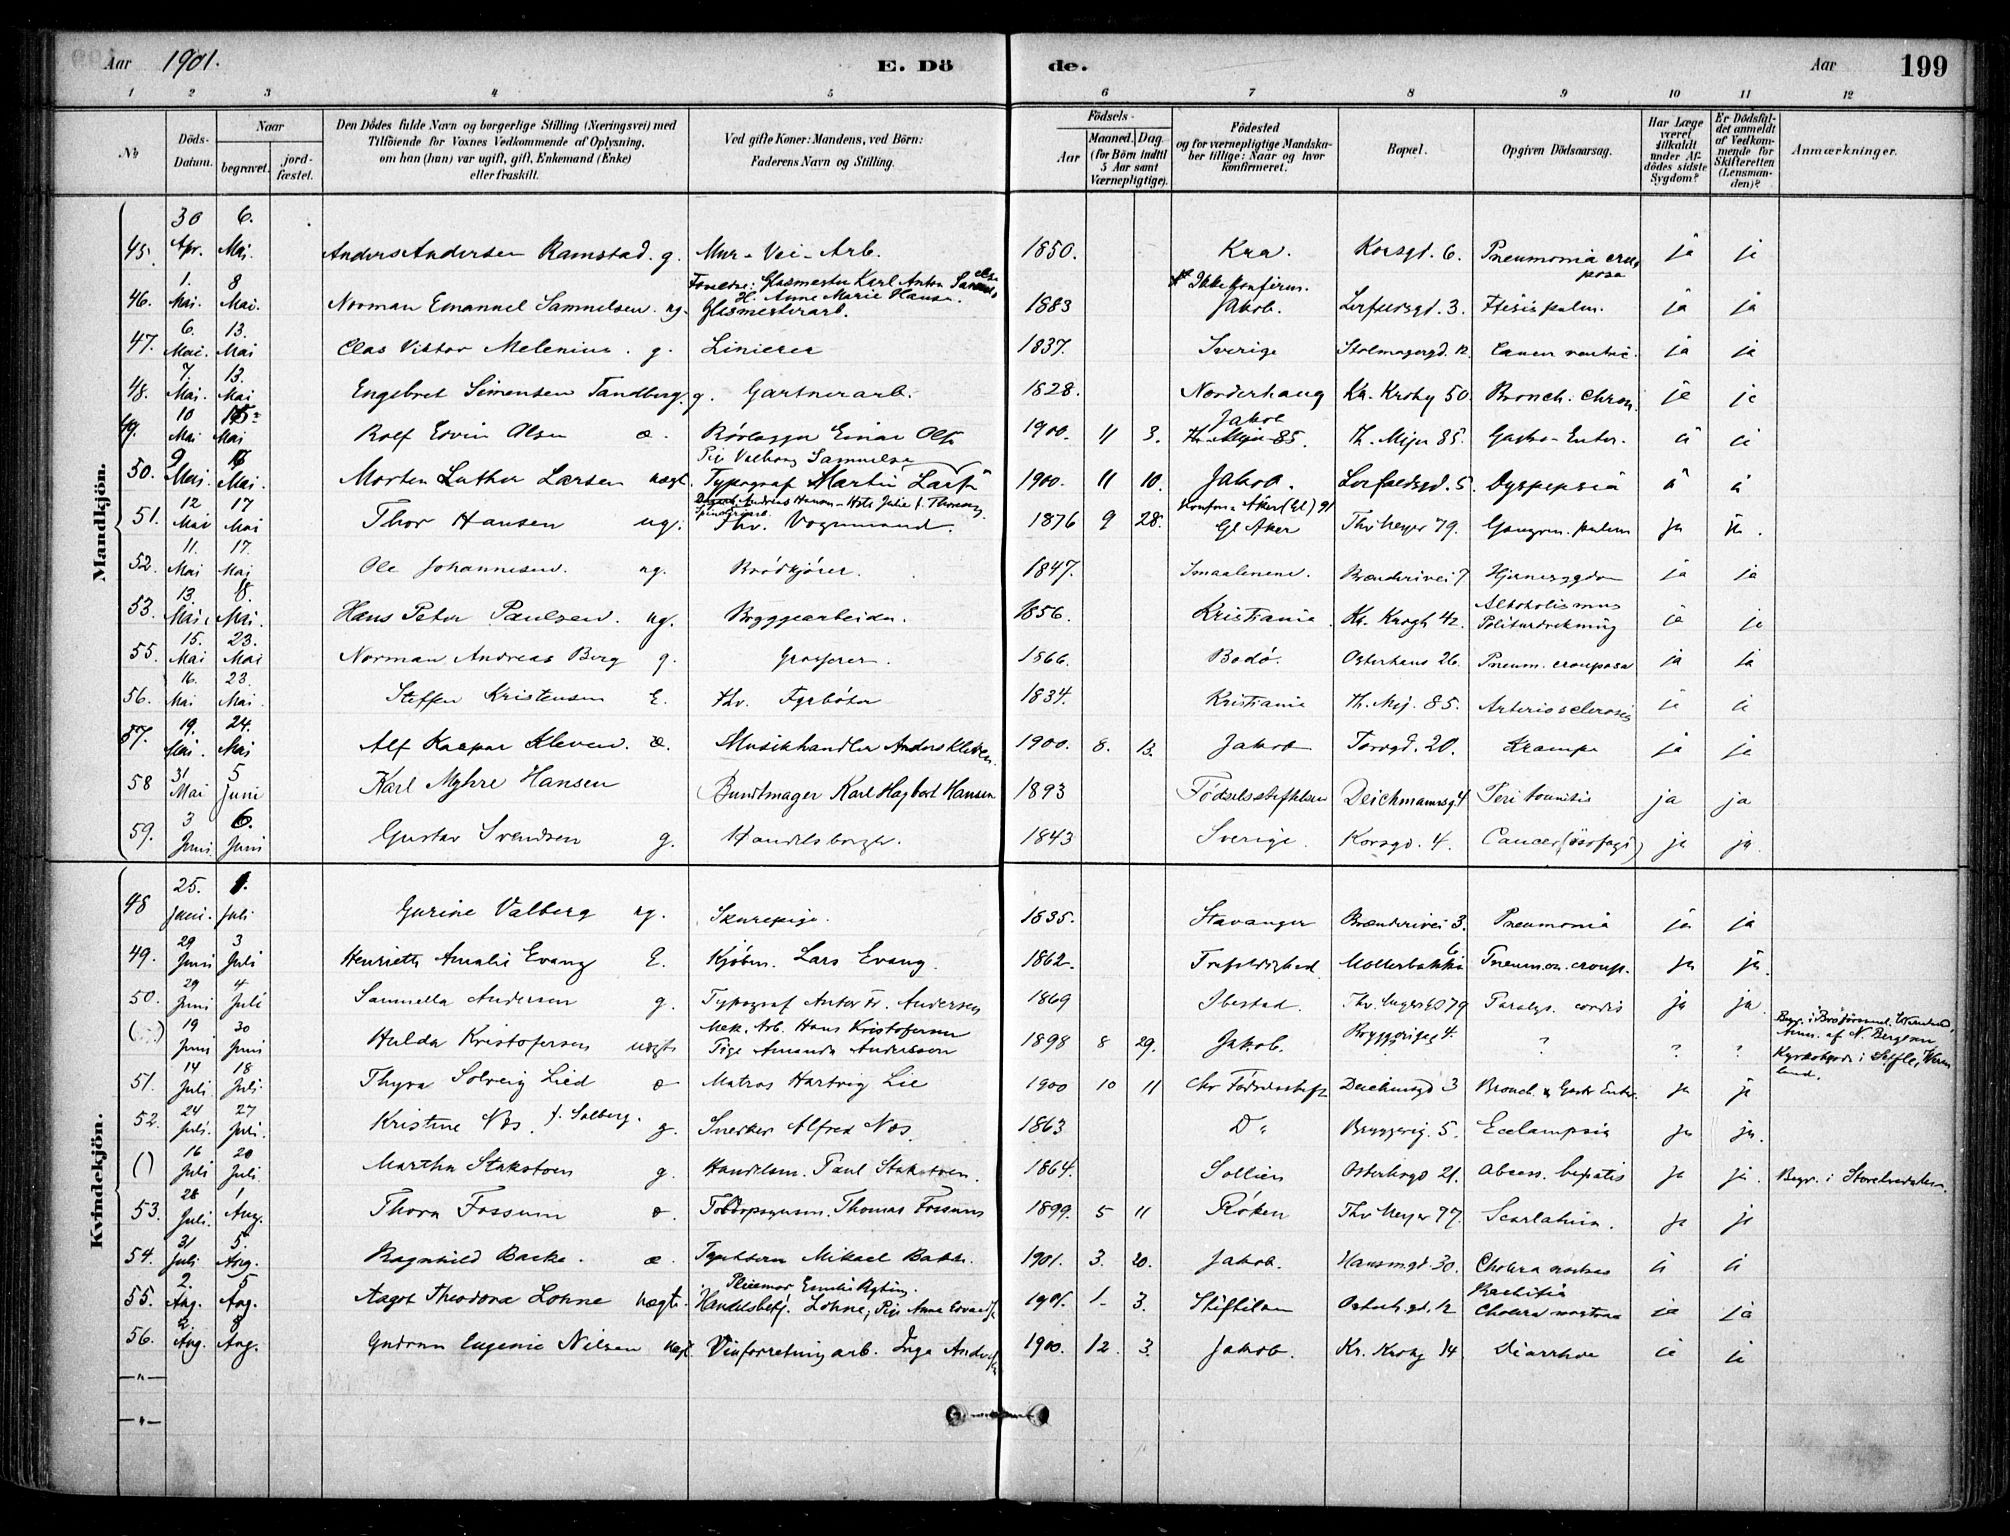 Aar 1901. E. Dö de. Aar 199
1 2 3 4 5 6 7 8 9 10 11 12
No
Döds-Datum.
Naar
begravet.
jord-fæstet.
Den Dödes fulde Navn og borgerlige Stilling (Næringsvei) med Tilföiende for Voxnes Vedkommende af Oplysning, om han (hun) var ugift, gift, Enkemand (Enke) eller fraskilt.
Ved gifte Koner: Mandens, ved Börn: Faderens Navn og Stilling.
Födsels-
Aar
Maaned. Dag.
(for Börn indtil 5 Aar samt Værnepligtige).
Födested og for værnepligtige Mandskaber tillige: Naar og hvor konfirmeret.
Bopæl.
Opgiven Dödsaarsag.
Har Læge været tilkaldt under Afdödes sidste Sygdom?
Er Dödsfaldet anmeldt af Vedkommende for Skifteretten (Lensmanden)?
Anmærkninger.
Mandkjön.
45. 30 Apr. 6. Mai. Anders Andersen Ramstad. g. Mur- Vei- Arb. 1850. Kra. Korsgt. 6. Pneumonia crouposa ja ja
46. 1. Mai. 8 Mai. Norman Emanuel Samuelsen. ug. Forældre: Glasmester Karl Anton Samuelsen H. Anne Marie Hansen. Glasmesterarb. 1883 Ikke konfirm. Jakob. 3. Ftisis pulm. ja ja
47. 6. Mai. 13. Mai Clas Viktor Melenius. g. Linierer 1837. Sverige Stolmagergd. 12. Cancer ventric. ja ja
48. 7. Mai. 13. Mai Engebret Simensen Tandberg. g. Gartnerarb. 1828. Norderhaug Kr. Krohg 50. Bronch. chron. ja ja
49. 10 Mai 15 Mai Rolf Edvin Olsen æ. Rörlægger Einar Olsen 1900. 11 3. Jakob Th. Meyer 85. Th. Meyer 85. Gastro-Enter. ja ja
50. 9 Mai. Mai. Morten Luther Larsen uægt. Pige Valborg Samuelsen Typograf Martin Larsen 1900. 11 10. Jakob. 5. Dyspepsia
51. 12 Mai 17 Mai Thor Hansen ug. Thv. Vognmand. 1876 9 28. Konfirm. Aker (Gl) 91 Gl Aker Thv Meyer 79. Gangræn. pulm ja ja.
52. 11. Mai 17. Mai Ole Johannesen. ug. Brödkjörer. 1847. Smaalenene. Brænderivei 7 Hjernesygdom ja ja
53. 13. Mai. 18. Mai. Hans Peter Paulsen. ug. Byggearbeider. 1856. Kristiania. Kr. Krogh 42. Alkoholismus Politurdrikning ja ja
55. 15. Mai 23. Mai Norman Andreas Berg g. Grosserer. 1866. Bodö. Osterhaus 26. Pneum. crouposa ja ja
56. 16. Mai 23. Mai. Steffen Kristensen E. thv. Fyrböter 1834. Kristiania Th. Mej. 85. Arteriosclerosis ja ja
57. 19. Mai. 24. Mai Alf Kaspar Kleven. æ. Musikhandler Anders Kleven. 1900. 8. 13. Jakob Torvgd. 20. Krampe ja ja
58 31 Mai 5 Juni Karl Myhre Hansen Bundtmager Karl Hagbart Hansen 1893 Födselsstiftelsen Deichmannsg. 4 Peritonitis ja ja
59. 3 Juni 6. Juni Gustav Svendsen g. Handelsborger. 1843 Sverige. Korsgd. 4. Cancer (ösofagi) ja ja.
Kvindekjön.
48 25. Juni. 1. Juli Gurine Valberg ug. Skurepige. 1835. Stavanger Brænderivei 3. Pneumonia ja ja
49. 29 Juni 3 Juli Henriette Amalie Evang E. Kjöbm. Lars Evang. 1862. Trefoldighed Möllerbakken 6 Pneumon. croup. ja ja.
50. 29 Juni 4 Juli Samuella Andersen g. Typograf Anton Fr. Andersen 1869 Ibestad. Thv. Meyersgd 79 Paralys. cordis ja ja
( ) 19 Juni 30 Juni Hulda Kristofersen uægte Mek. Arb. Hans Kristofersen Pige Amanda Andersson 1898 8 29. Jakob. Bryggerigd 4. ? ? ?
51. 14 Juli 18 Juli. Thyra Solveig Lied æ Matros Hartvig Lie 1900 10 11 Kr Födselsstift Deichmsgd 3 Bronch. & Gastr Enter. ja ja
52. 24 Juli. 27 Juli. Kristine Nös. f. Solberg. g. Snedker Alfred Nös. 1863 Do Bryggerig. 5. Eclampsia ja ja.
( ) 16 Juli 20 Juli Martha Stakstoen g. Handelsm. Paul Stakstoen. 1864. Sollien Osterhsgd 21. Absces. hepatis ja ja. Begr. i Storelvedalen.
53. 28 Juli. 1 Aug. Thora Fossum æ. Thomas Fossum 1899. 5 11 Röken Thv Meyer 77. Scarlatina. ja ja
54. 31 Juli 5. Aug. Ragnhild Bakke. æ. Mikael Bakke. 1901. 3. 20. Jakob. Hausmgd. 30. Cholera nostras ja ja
55. 2. Aug. 5 Aug. Aagot Theodora Lohne uægte. Pleiemor Emilie Handelsbetj. Lohne, Pige Anna 1901. 1. 3. Stiftelsen Osterh. gd. 12 Rachitis Cholera nostras ja ja
56. 2. Aug. 8 Aug. Gudrun Eugenie Nilsen uægt. Vinforretning arb. Inga 1900. 12 3. Jakob. Kr. Krohg 14 Diarrhoe ja ja